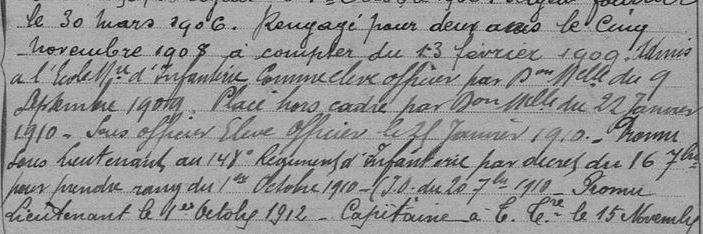 le 30 mars 1906. Rengagé pour deux ans le Cinq
novembre 1908 à compter du 13 février 1909. Admis
à l'Ecole Mre d'Infanterie Comme élève officier par Don Melle du 9
Septembre 1909. Placé hors cadre par Don Melle du 22 Janvier
1910 - Sous officier Elève Officier le 21 Janvier 1910. - Promu
Sous Lieutenant au 148e Régiment d'Infanterie par décret du 16 7bre
pour prendre rang du 1er Octobre 1910 - (J.O. du 20 7bre 1910 - Promu
Lieutenant le 1er Octobre 1912 - Capitaine à T. Tre le 15 Novembre